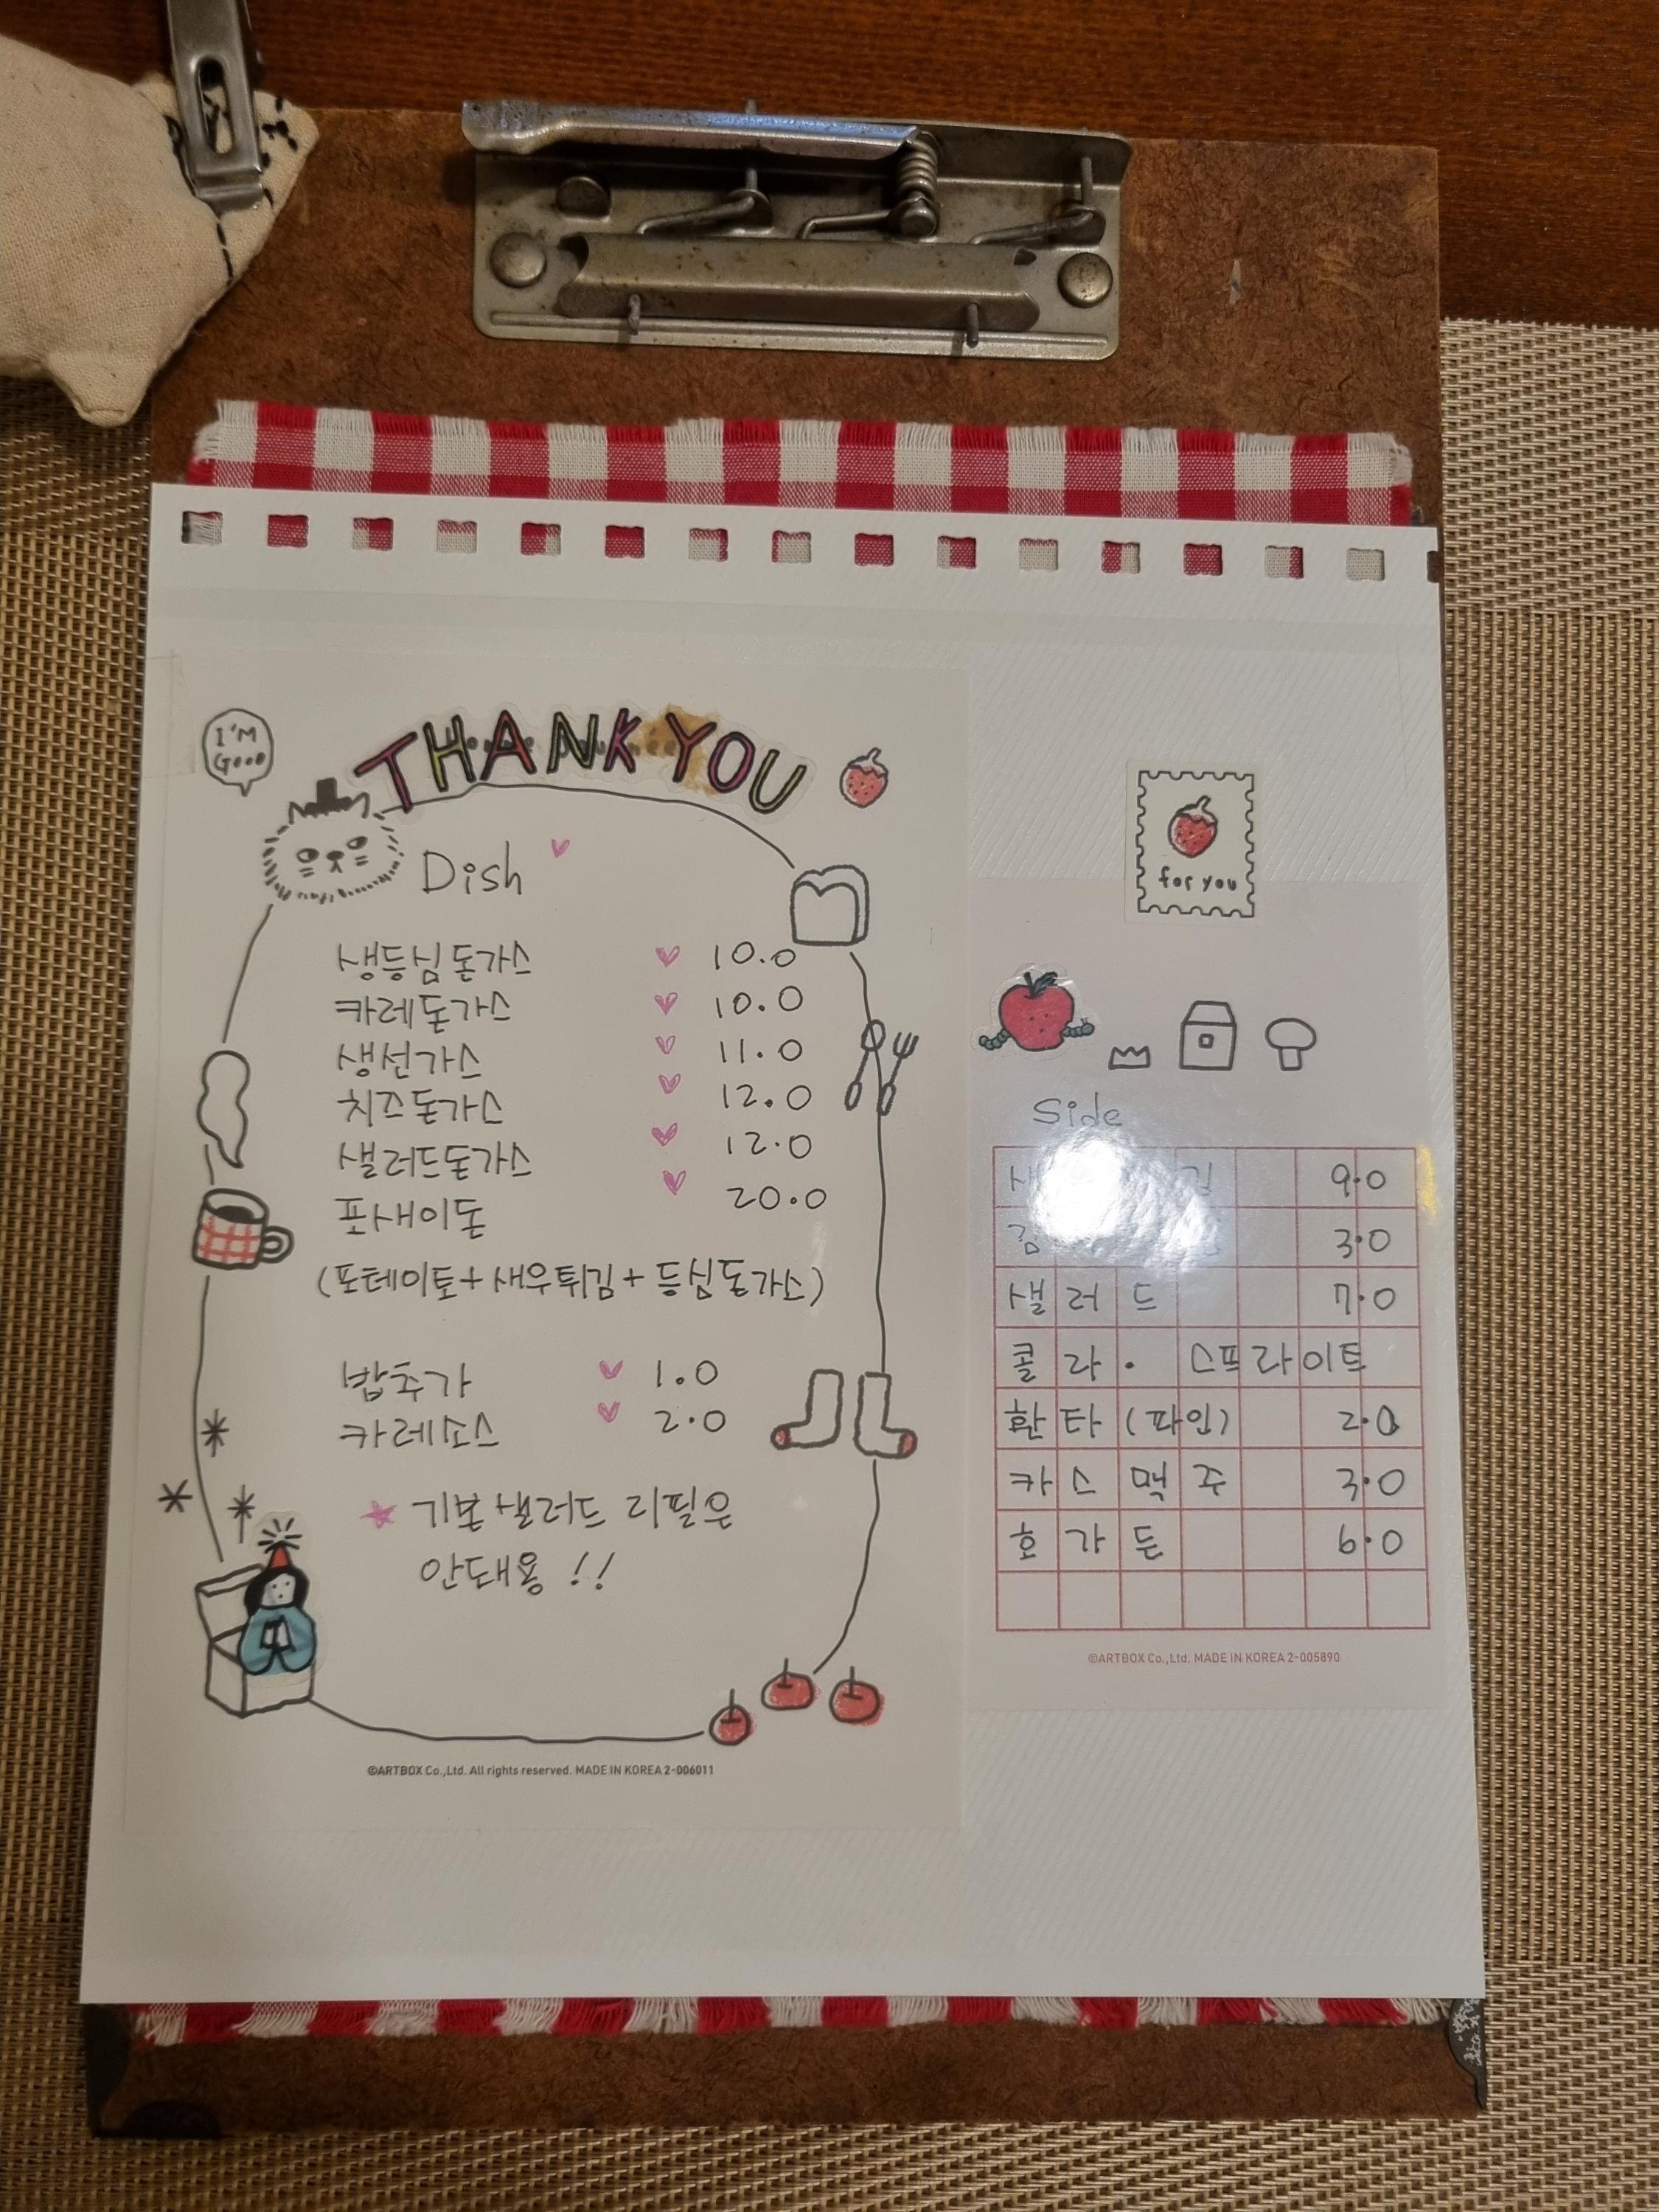 I'M
Good
THANK YOU
Dish
생등심돈가스 10.0
카레돈가스 10.0
생선가스 11.0
치즈돈가스 12.0
샐러드돈가스 12.0
포새이돈 20.0
(포테이토+새우튀김+등심돈가스)
밥추가 1.0
카레소스 2.0
기본샐러드 리필은
안돼용 !!
©ARTBOX Co.,Ltd. All rights reserved. MADE IN KOREA 2-006011
for you
Side
9.0
3.0
샐러드 7.0
콜라· 스프라이트
환타(파인) 2.0
카스맥주 3.0
호가든 6.0
©ARTBOX Co.,Ltd. MADE IN KOREA 2-005890